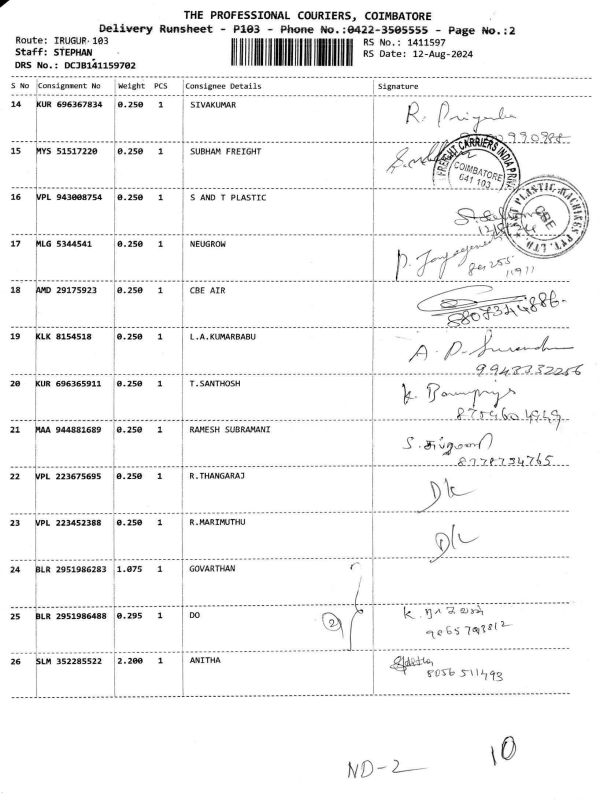 THE PROFESSIONAL COURIERS, COIMBATORE
Delivery Runsheet - P103 - Phone No.:0422-3505555 - Page No.:2
Route: IRUGUR 103
RS No.: 1411597
Staff: STEPHAN
RS Date: 12-Aug-2024
DRS No.: DCJB141159702
S No Consignment No Weight PCS Consignee Details Signature
14 KUR 696367834 0.250 1 SIVAKUMAR R. Priyanka
15 MYS 51517220 0.250 1 SUBHAM FREIGHT
FREIGHT CARRIERS INDIA
COIMBATORE
641 103
16 VPL 943008754 0.250 1 S AND T PLASTIC
12/8/24
PLASTIC MACHINES PVT. LTD
CBE
17 MLG 5344541 0.250 1 NEUGROW
18 AMD 29175923 0.250 1 CBE AIR
19 KLK 8154518 0.250 1 L.A.KUMARBABU
9948332256
20 KUR 696365911 0.250 1 T.SANTHOSH
8754604949
21 MAA 944881689 0.250 1 RAMESH SUBRAMANI
8778734765
22 VPL 223675695 0.250 1 R.THANGARAJ
23 VPL 223452388 0.250 1 R.MARIMUTHU
24 BLR 2951986283 1.075 1 GOVARTHAN
25 BLR 2951986488 0.295 1 DO 2
26 SLM 352285522 2.200 1 ANITHA
8056 511493
ND-2 10